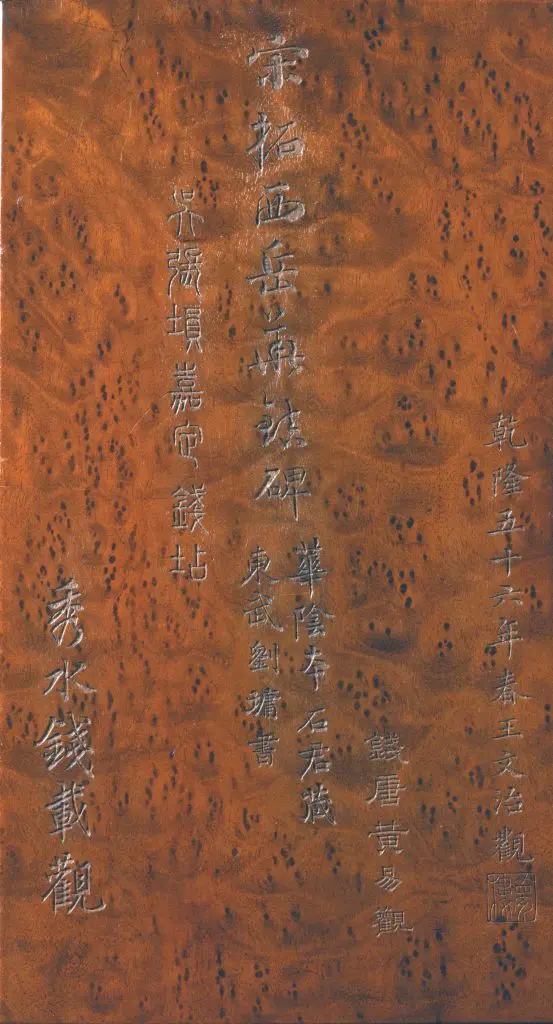 乾隆五十六年春王文治觀
夢樓
錢唐黃易觀
宋拓西岳華鎮碑
華陰本石君藏
東武劉墉書
吳張塤嘉定錢坫
秀水錢載觀